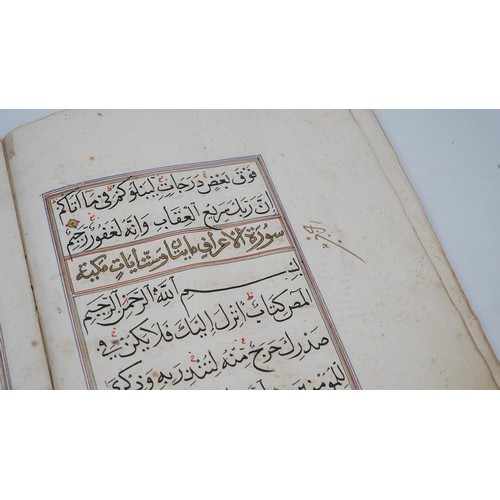 فوق بعض درجات ليبلوكم في ما اتاكم
ان ربك سريع العقاب وانه لغفور رحيم
سورة الاعراف مايتان وست ايات مكية
بسم الله الرحمن الرحيم
المص كتاب انزل اليك فلا يكن في
صدرك حرج منه لتنذر به وذكرى
للمؤمنين